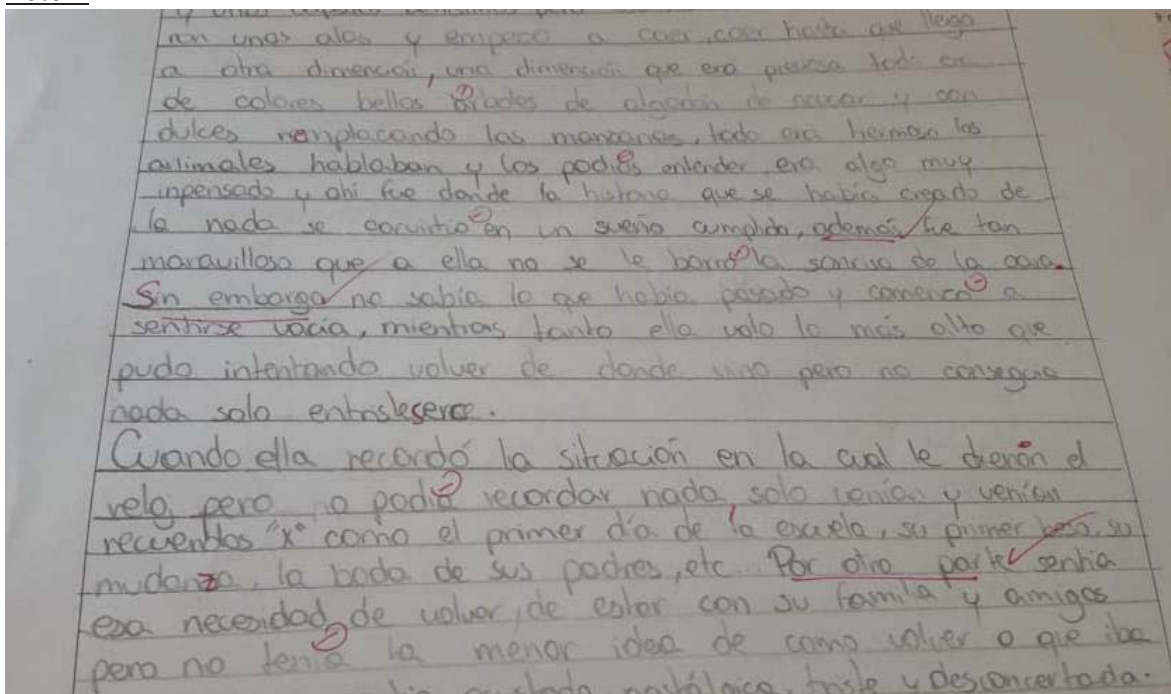 y unos
ron unas alas y empeco a caer, caer hasta que llego
a otra dimencion, una dimencion que era preciosa todo
de colores bellos arboles de algodon de azucar y con
dulces remplacando las manzanas, todo era hermoso los
animales hablaban y los podias entender era algo muy
inpensado y ahi fue donde la historia que se habia creado de
la nada se convirtio en un sueño cumplido, además fue tan
maravilloso que a ella no se le borro la sonrisa de la cara.
Sin embargo no sabia lo que habia pasado y comenco a
sentirse vacía, mientras tanto ella volo lo más alto que
pudo intentando volver de donde vino pero no conseguia
nada solo entrisleserce.
Cuando ella recordó la situación en la cual le dieron el
reloj pero no podia recordar nada, solo venían y venían
recuerdos "x" como el primer día de la escuela, su primer beso, su
mudanza, la boda de sus padres, etc.. Por otro parte sentia
esa necesidad de volver, de estar con su familia y amigos
pero no tenia la menor idea de como volver o que iba
nostálgica, triste y desconcertada.